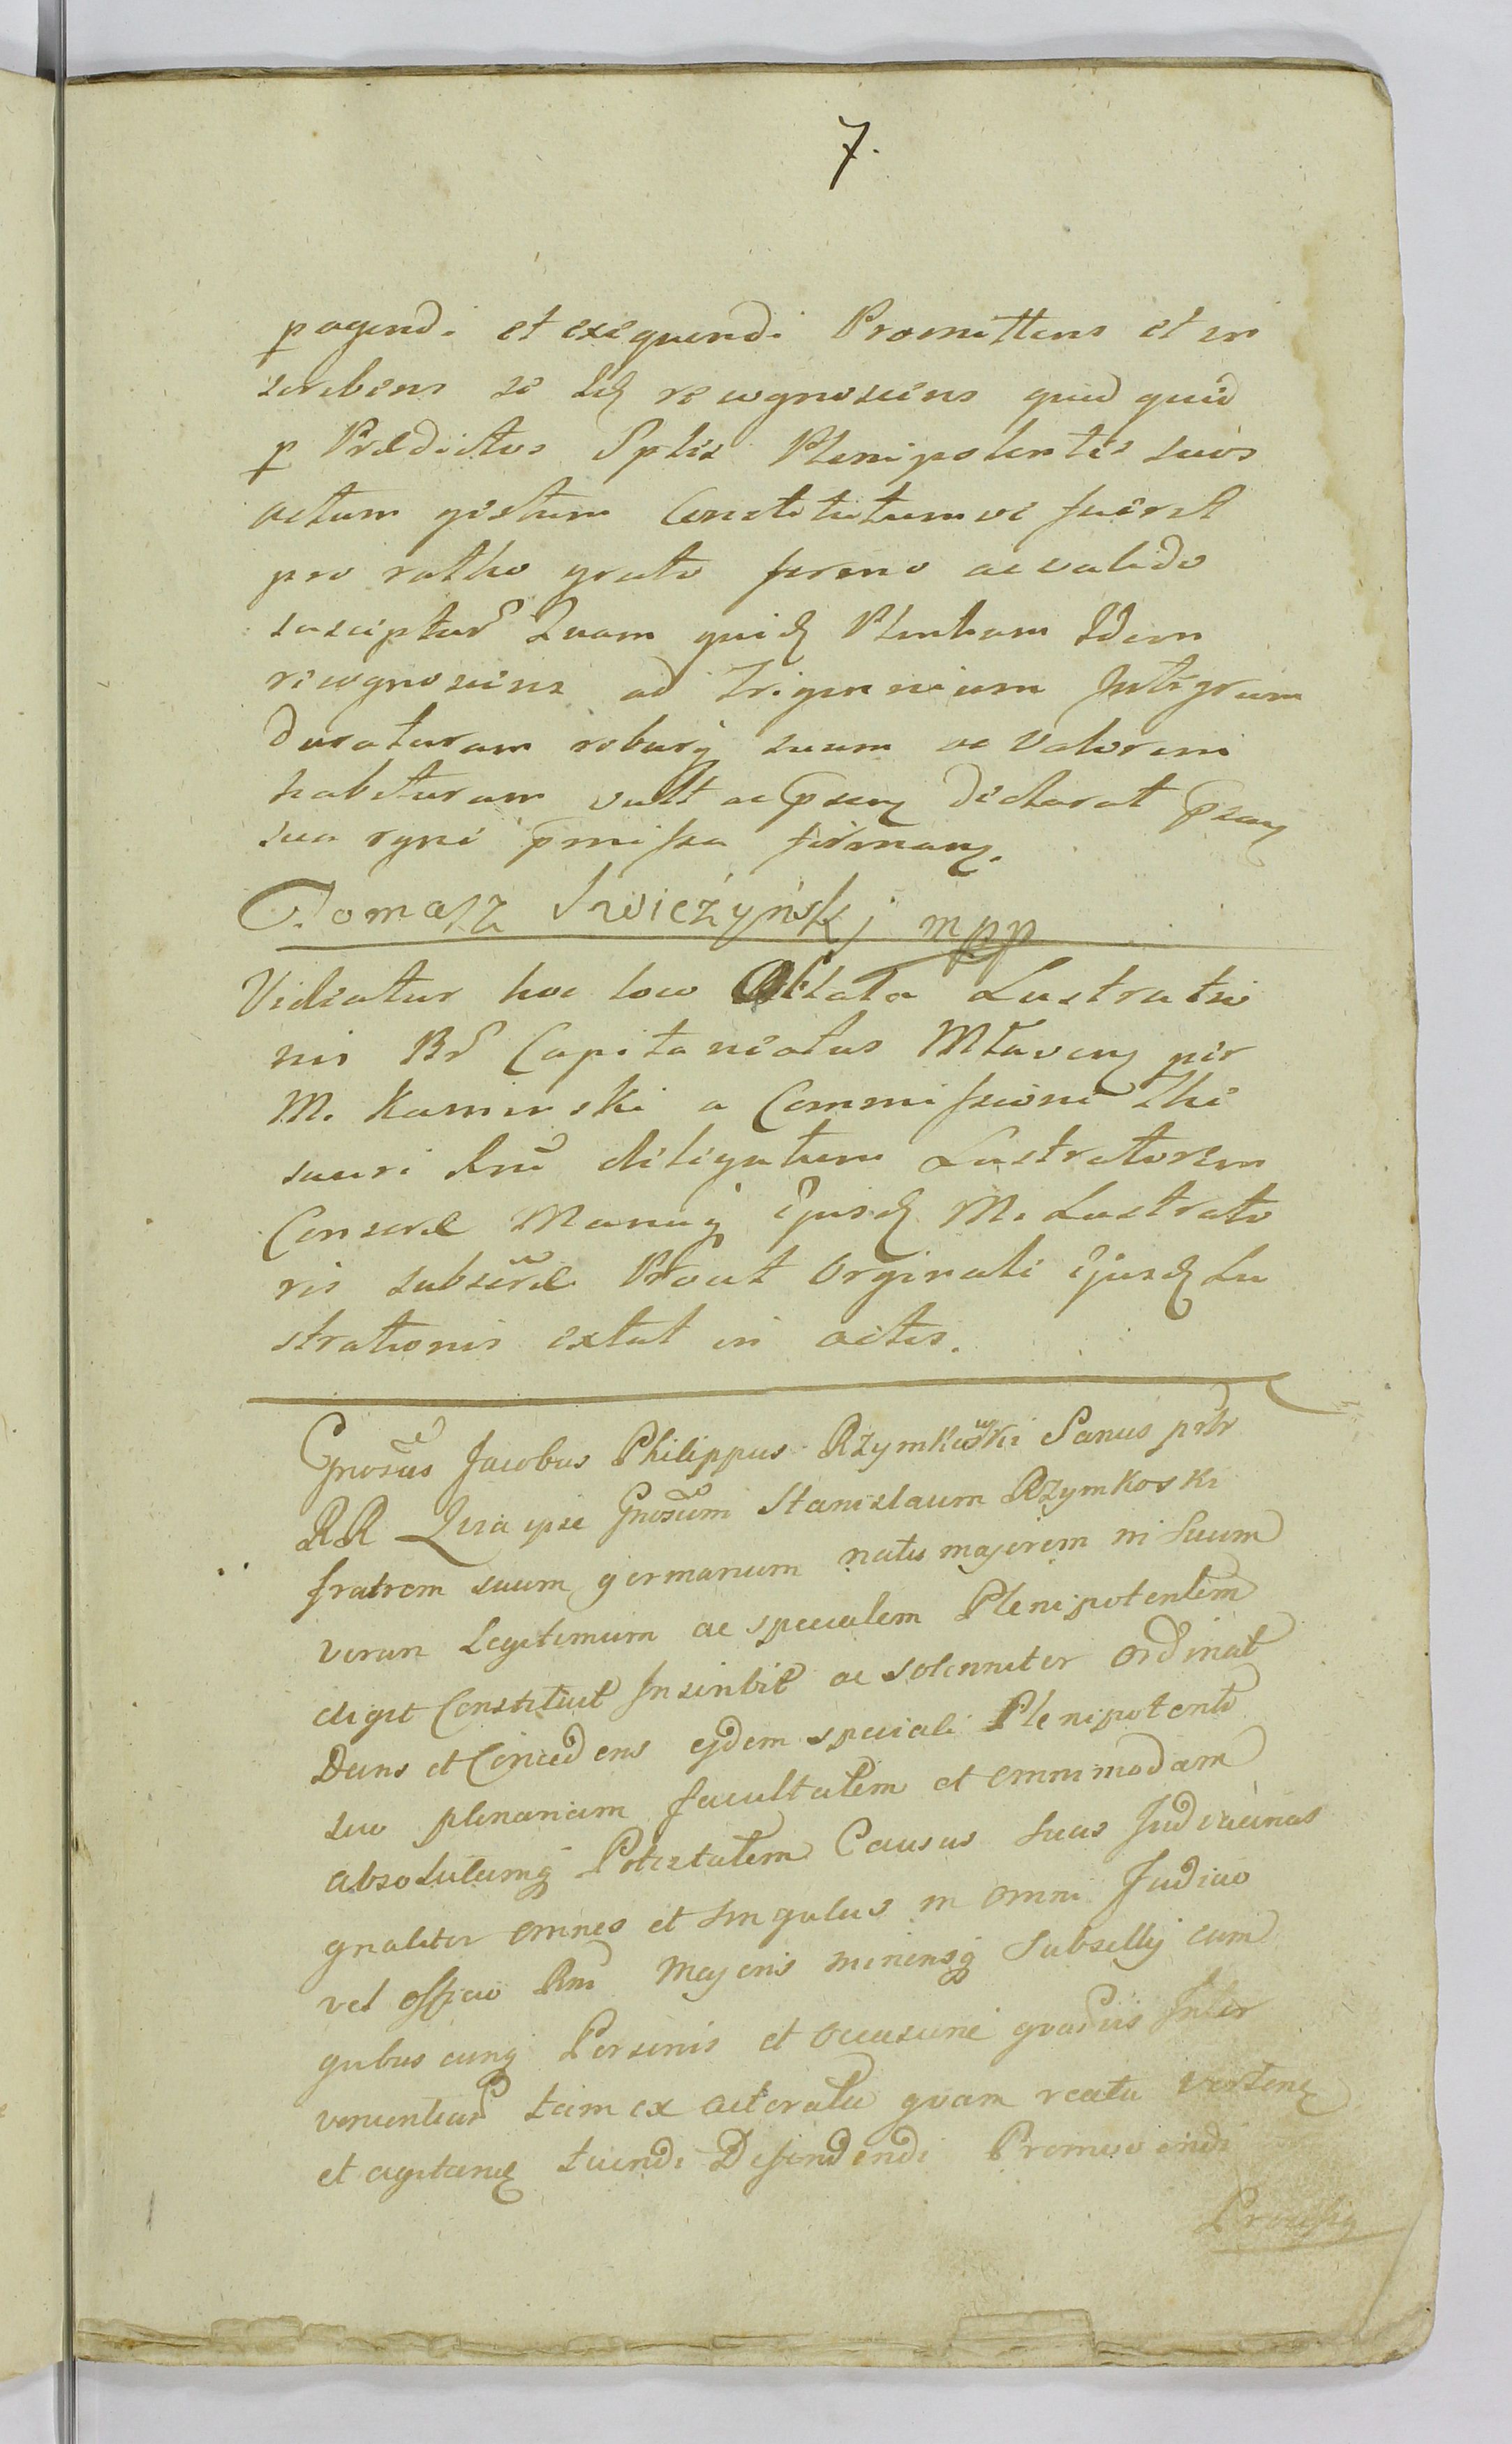 7.
pagendi et exequendi Promittens et in
scribens se Idq recognoscens quid quid
p Prædictos Sples Plenipotentes suos
actum gestum Constitutumve fuerit
pro ratho grato firmo ac valido
suscipturũ Quam quidq Plentiam Idem
recognoscens ad Trigennium Integrum
duraturam roburq suum ac Valorem
habituram vult ac psenq declarat psenq
sua rgne pmissa firmanq.
Tomasz Swieżyński mpp
Videatur hoc loco Oblata Lustratio
nis Br Capitaneatus Mlavenq per
M. Kaminski a Commissione The
sauri Rni deligatum Lustratorem
Conscræ Manuq Ejusdq M. Lustrato
ris subscræ Prout Orginale Ejusdq Lu
strationis extat in actis.
Gnosus Jacobus Philippus Rzymkowski Sanus pntr
RR Quia ipse Gnosum Stanislaum Rzymkoski
fratrem suum germanum natu majorem in suum
verum Legitimum ac specialem Plenipotentem
eligit Constituit Inscribit ac solenniter Ordinat
Dans et Concedens ejdem speciali Plenipotenti
suo plenariam facultatem et omnimodam
absolutamq Potestatem Causas suas Judiciarias
gnaliter omnes et singulas in omni Judicio
vel officio Rni Majoris minorisq Subsellij cum
qubus cunq Personis et occasione gravis Inter
venientiar tam ex actoratu quam reatu vertenq
et agitanq tuendi Defendendi Promovendi